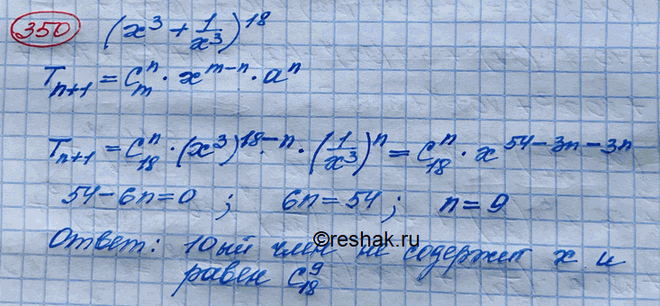 350 (x³ + 1/x³)¹⁸
Tₙ₊₁ = Cₘⁿ · xᵐ⁻ⁿ · aⁿ
Tₙ₊₁ = C₁₈ⁿ · (x³)¹⁸⁻ⁿ · (1/x³)ⁿ = C₁₈ⁿ · x⁵⁴⁻³ⁿ⁻³ⁿ
54-6n=0 ; 6n=54; n=9
©reshak.ru
Ответ: 10ый член не содержит x и
равен C₁₈⁹